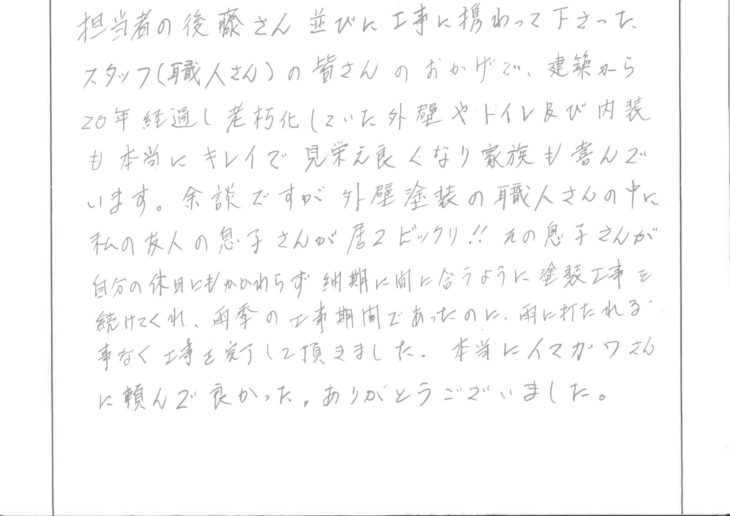 担当者の後藤さん並びに工事に携わって下さった
スタッフ(職人さん)の皆さんのおかげで、建築から
20年経過し老朽化していた外壁やトイレ及び内装
も本当にキレイで見栄え良くなり家族も喜んで
います。余談ですが外壁塗装の職人さんの中に
私の友人の息子さんが居てビックリ!!その息子さんが
自分の休日にもかかわらず納期に間に合うように塗装工事を
続けてくれ、雨季の工事期間であったのに、雨に打たれる
事なく工事を完了して頂きました。本当にイマガワさん
に頼んで良かった。ありがとうございました。